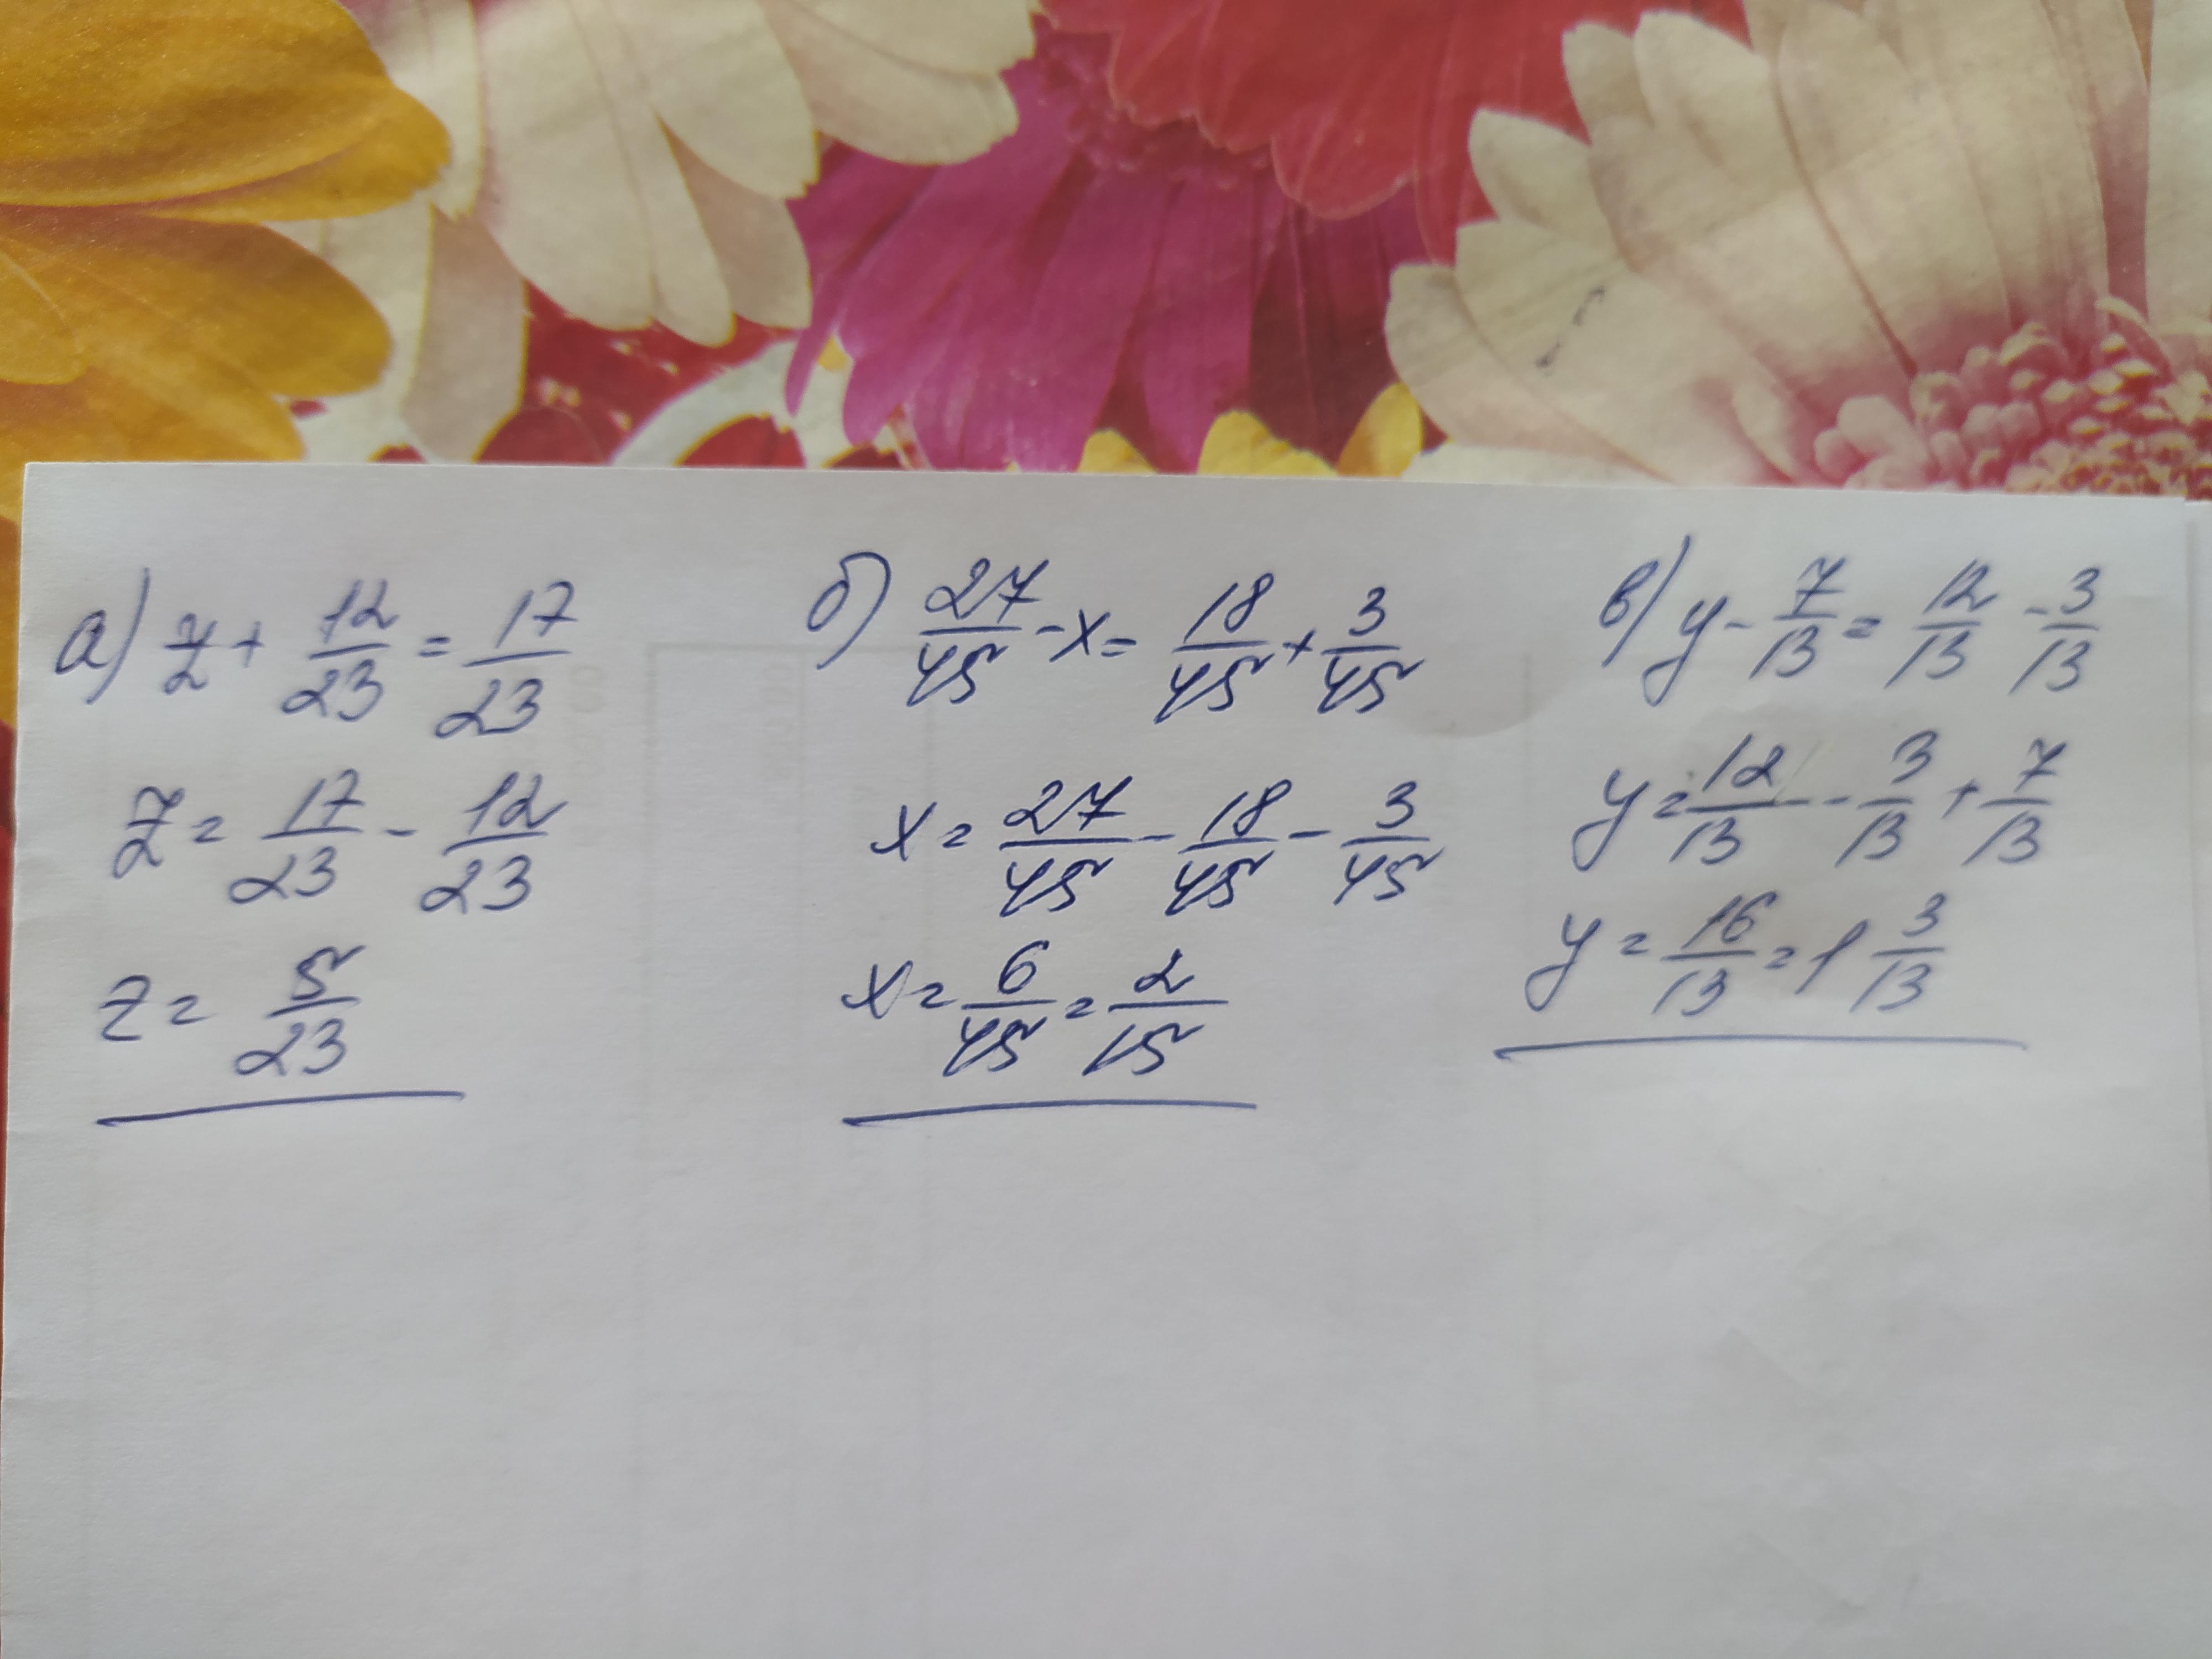 а) z + 12/23 = 17/23
z = 17/23 - 12/23
z = 5/23
б) 27/45 - x = 18/45 + 3/45
x = 27/45 - 18/45 - 3/45
x = 6/45 = 2/15
в) y - 7/13 = 12/13 - 3/13
y = 12/13 - 3/13 + 7/13
y = 16/13 = 1 3/13